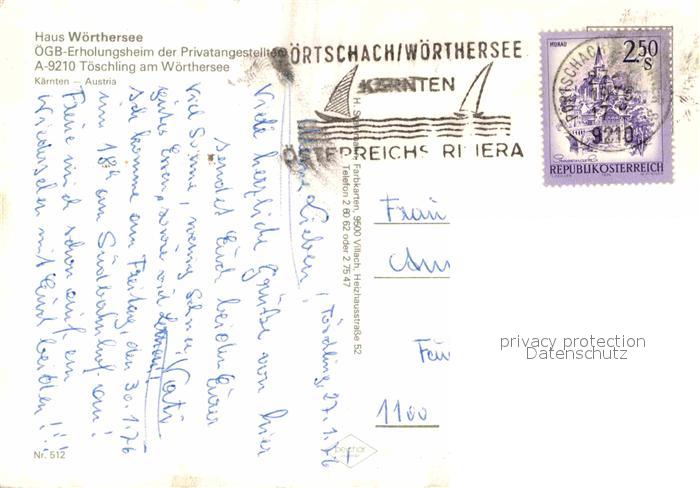 Haus Wörthersee
ÖGB-Erholungsheim der Privatangestellten
A-9210 Töschling am Wörthersee
Kärnten – Austria
ÖRTSCHACH/WÖRTHERSEE
KÄRNTEN
ÖSTERREICHS RIVIERA
MURAU
2.50
S
9210
REPUBLIK ÖSTERREICH
Farbkarten, 9500 Villach, Heizhausstraße 52
Telefon 2 60 62 oder 2 75 47
Töschling, 27.1.76
Lieben!
Viele herzliche Grüße von hier
sendet Euch beiden Euer
Vati
Viel Sonne, wenig Schnee,
ich komme am Freitag, den 30.1.76
um 18h am Südbahnhof an!
Freue mich schon auf ein
Wiedersehen mit Euch beiden!!!
Frau
1100
privacy protection
Datenschutz
Nr. 512